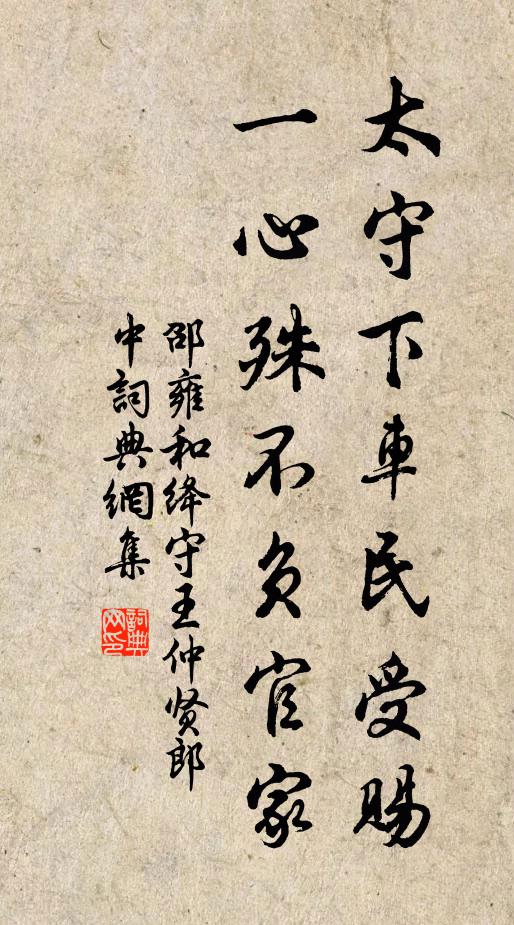 太守下車民受賜
一心殊不負官家
邵雍和绛守王仲贤郎
中詞典網集
詞典
网印